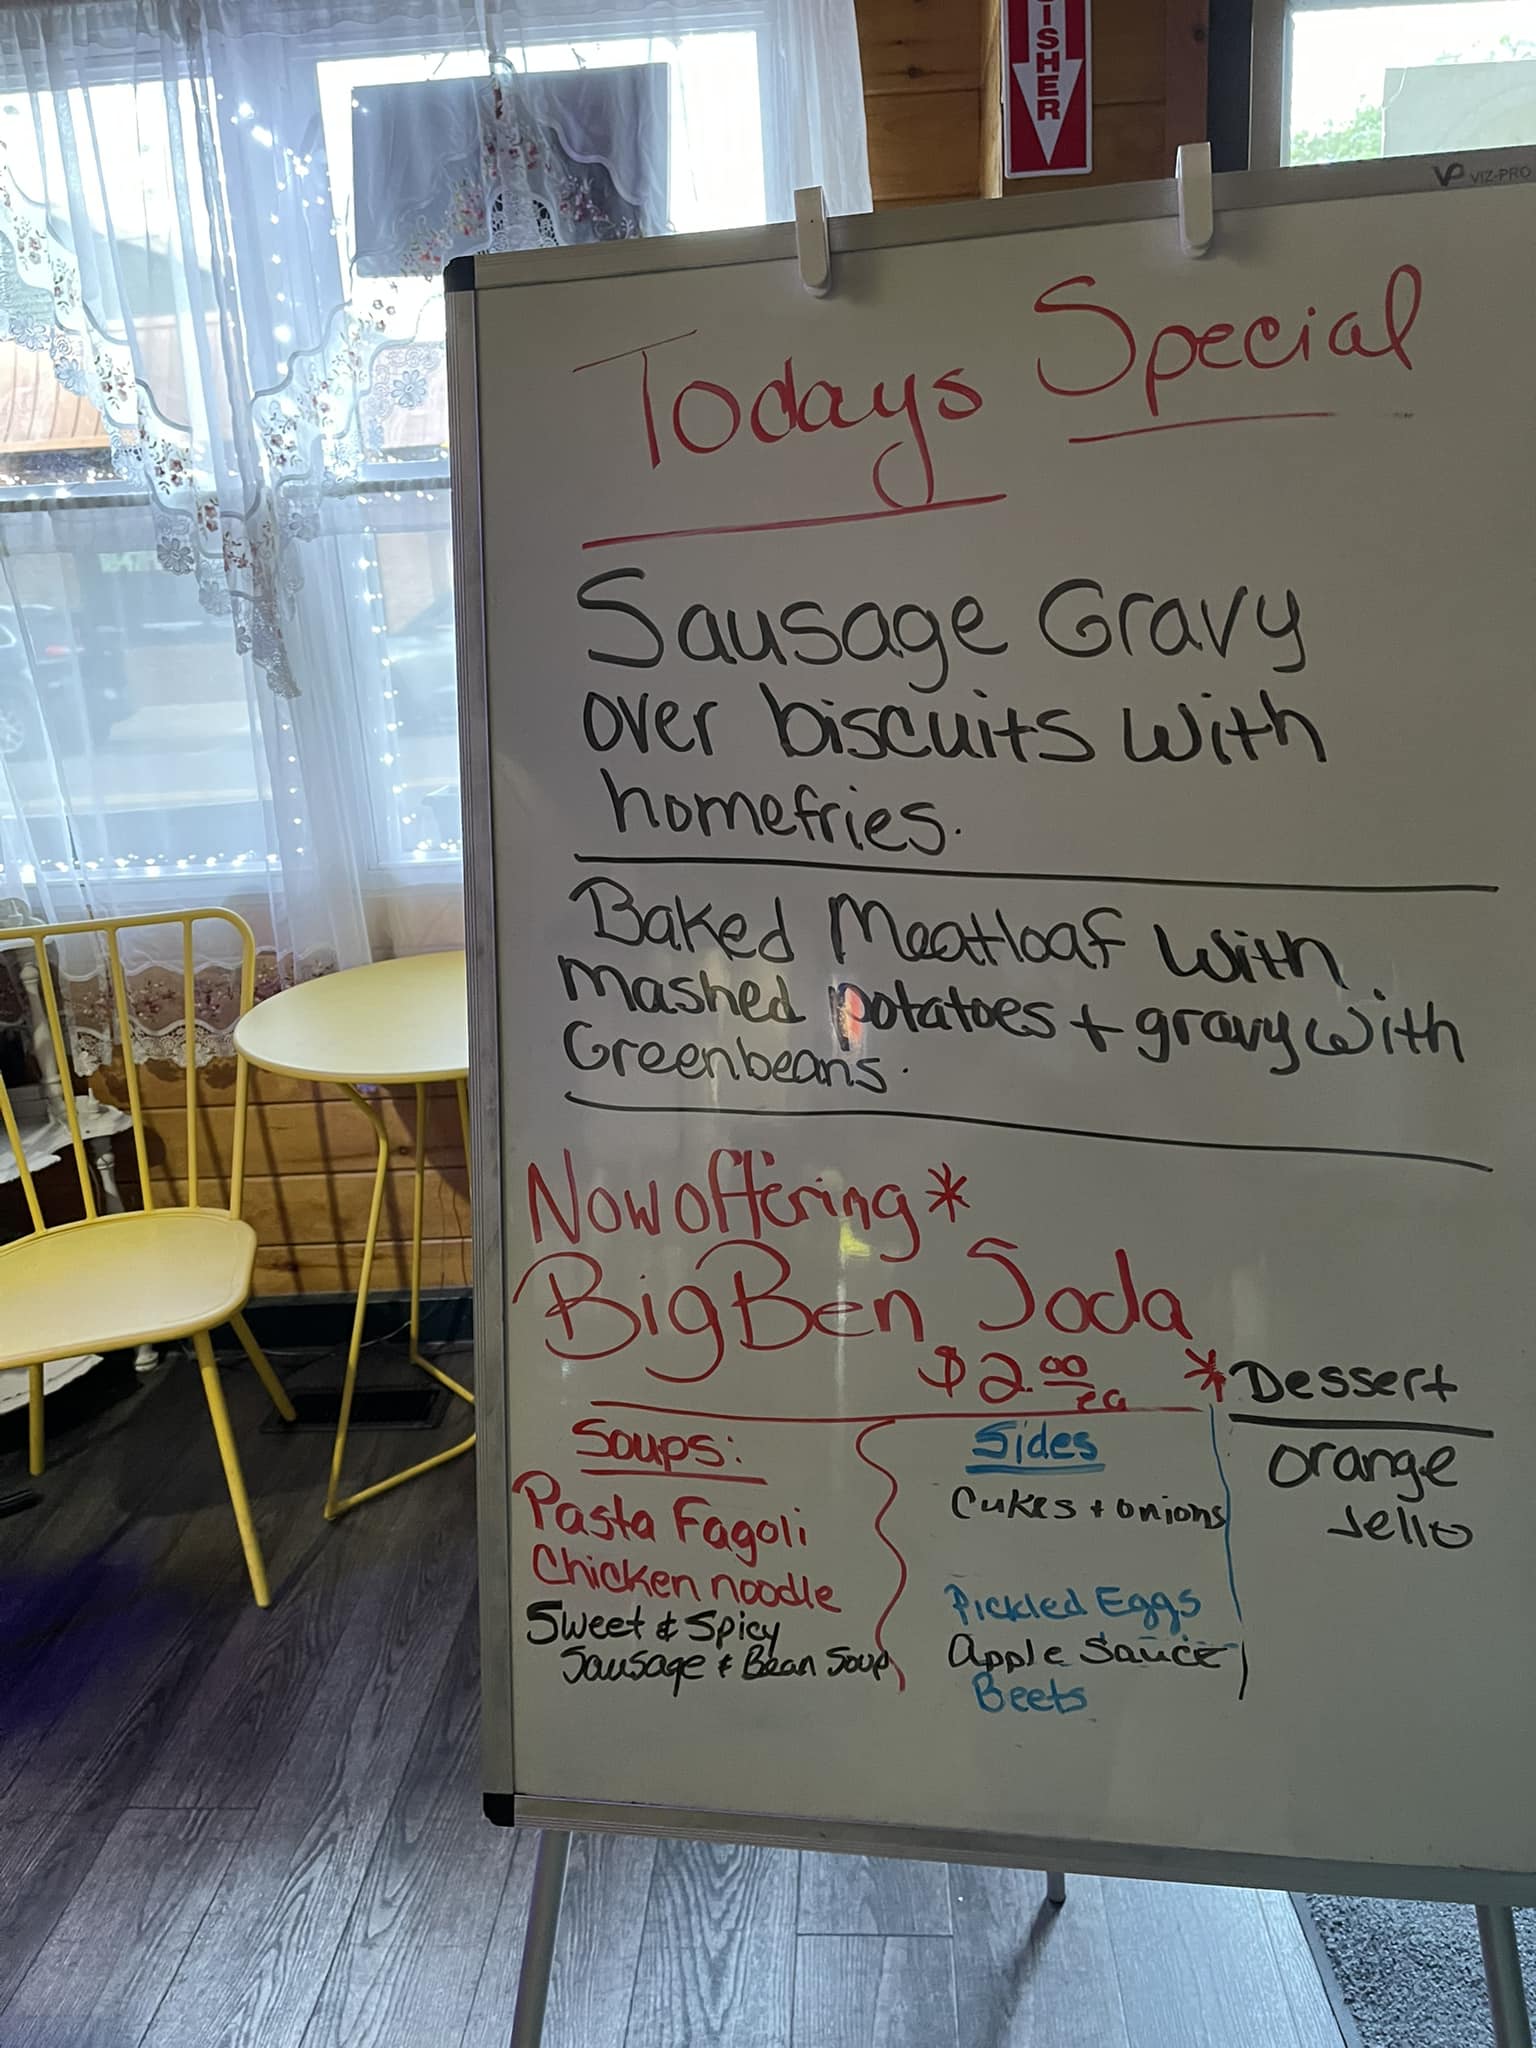 ISHER
VP VIZ-PRO
Todays Special
Sausage Gravy
over biscuits with
homefries.
Baked Meatloaf with
mashed potatoes + gravy with
Greenbeans.
Now offering *
Big Ben Soda
$2.00 ea *
Soups:
Pasta Fagoli
Chicken noodle
Sweet & Spicy
Sausage & Bean Soup
Sides
Cukes + onions
Pickled Eggs
Apple Sauce
Beets
Dessert
orange
Jello